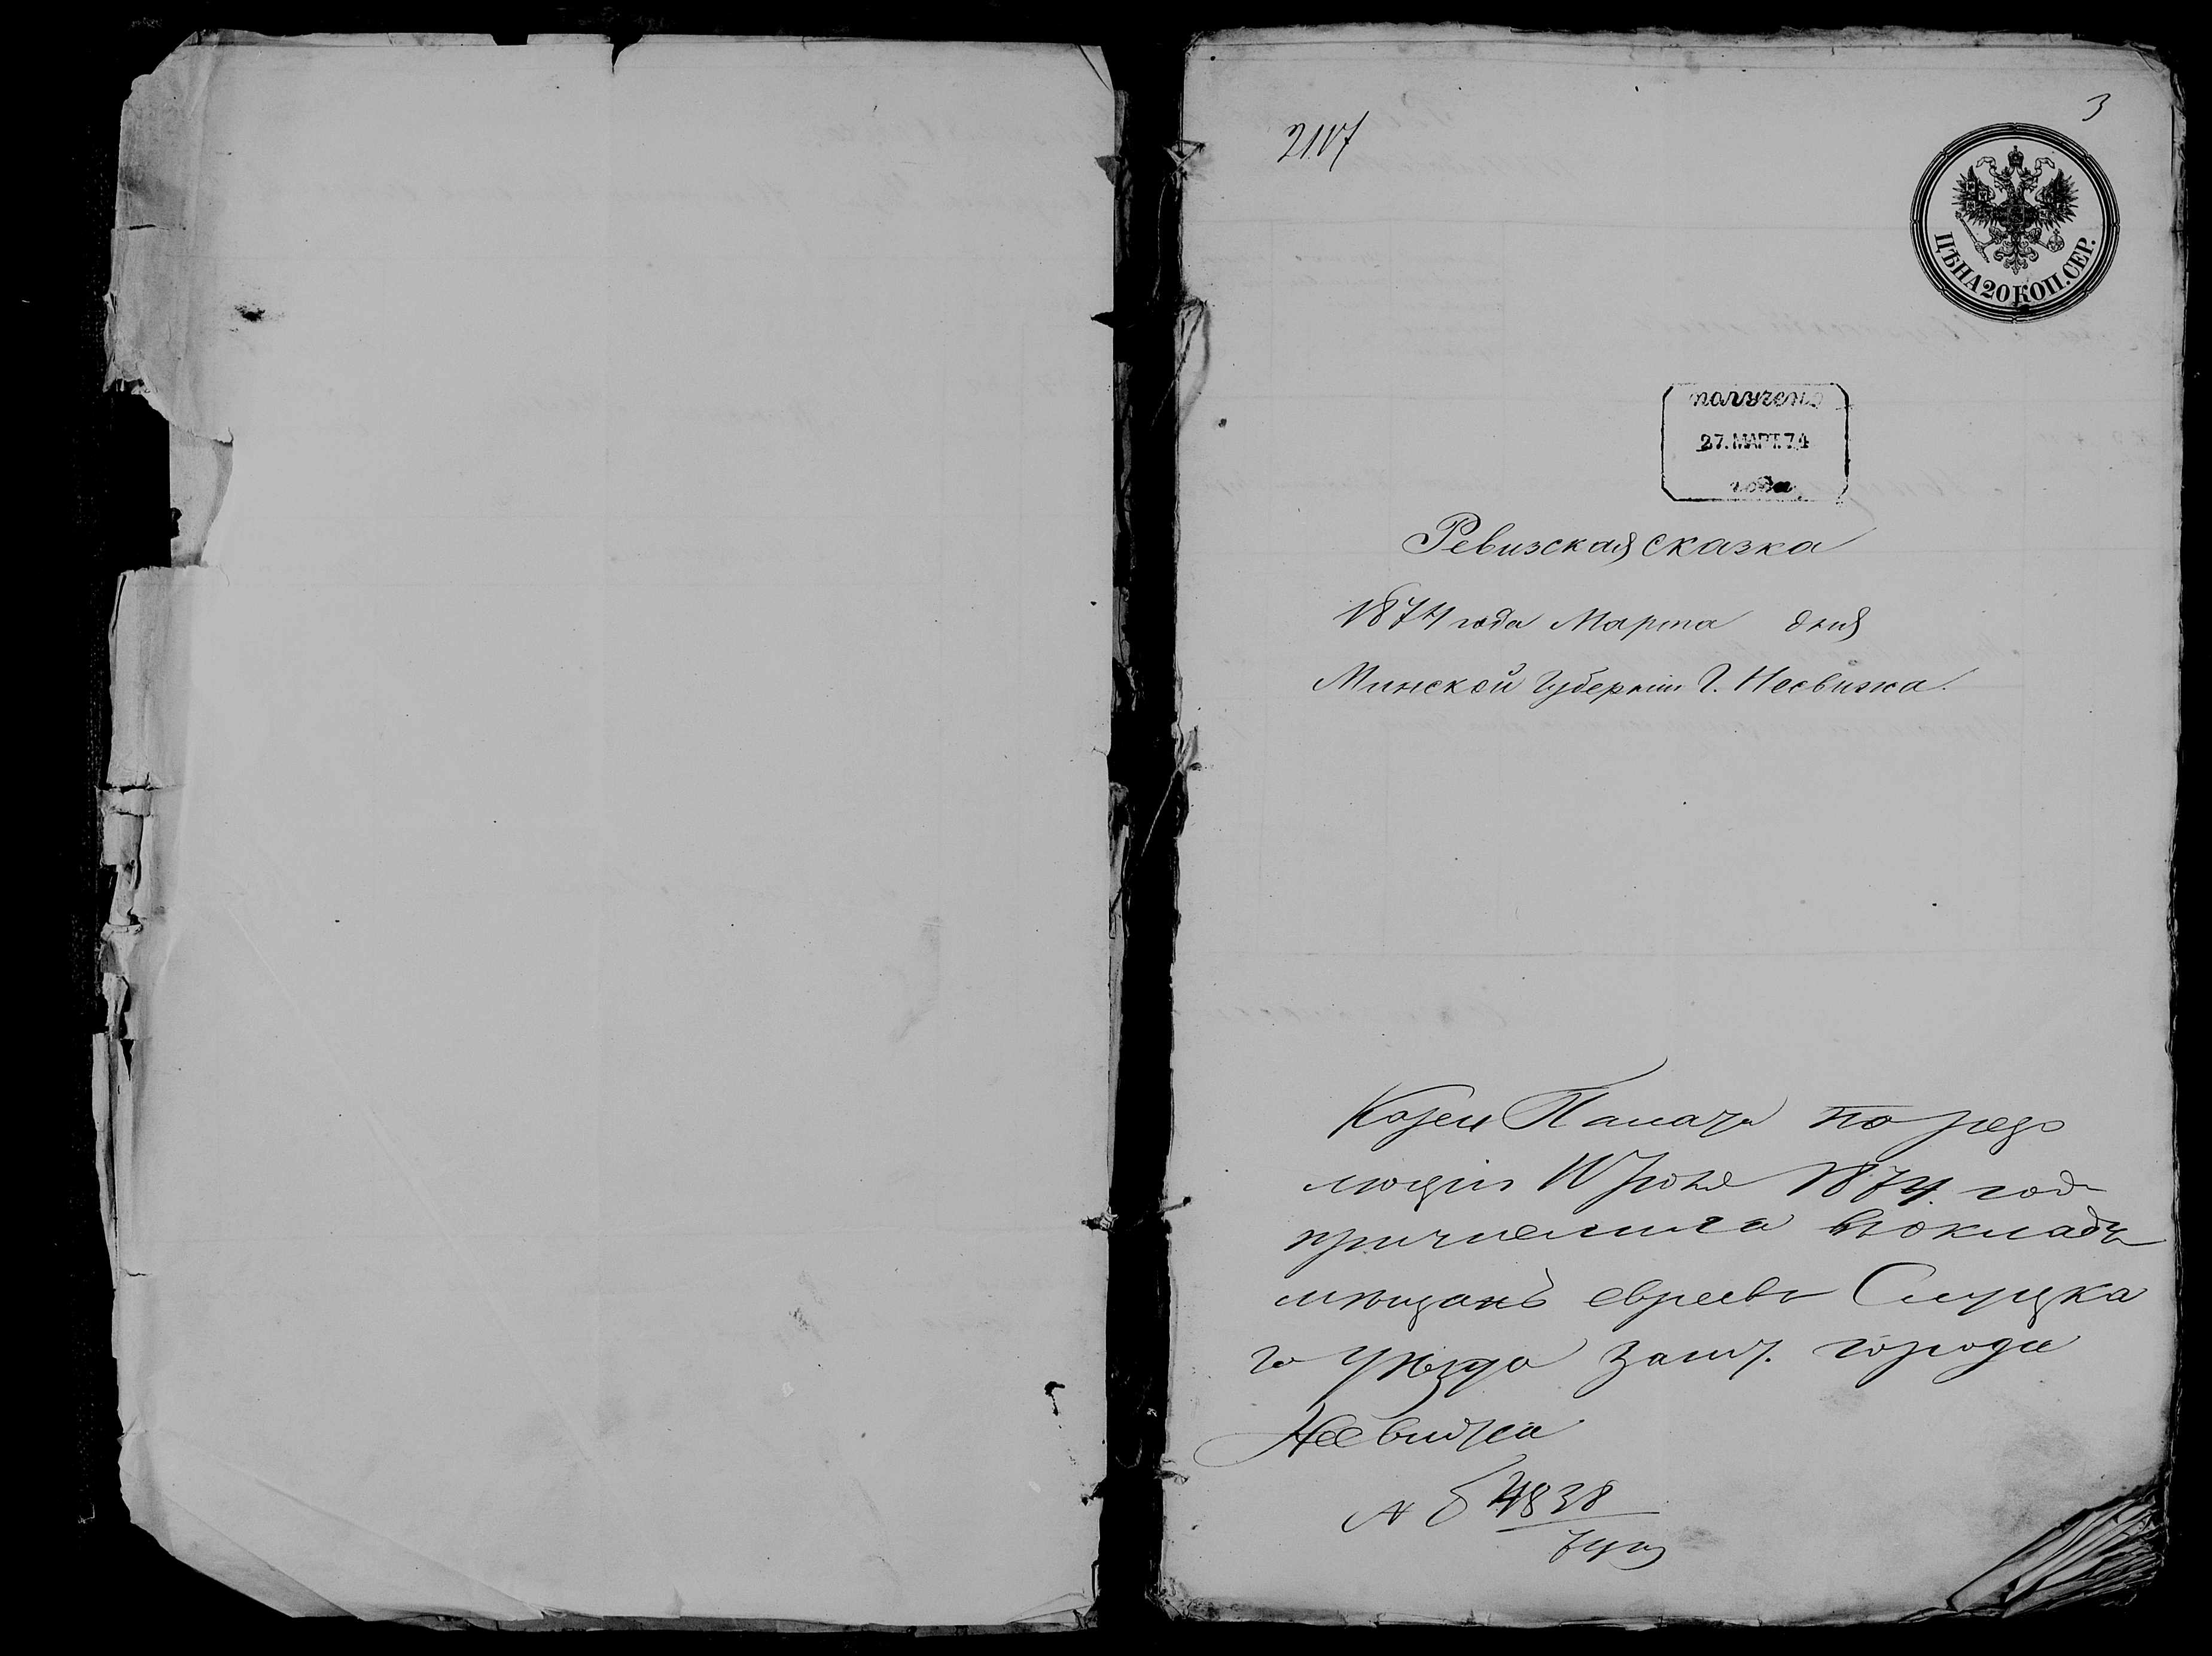 2117
3
ЦѢНА 20 КОП. СЕР.
получено
27. МАРТ. 74
года
Ревизская сказка
1874 года Марта дня
Минской Губерніи Г. Несвижа.
Казен Палаты по резо
люціи 1874. год
причислила въ окладъ
мѣщанъ евреевъ Слуцка
го уѣзда зашт. города
Несвижа
4838